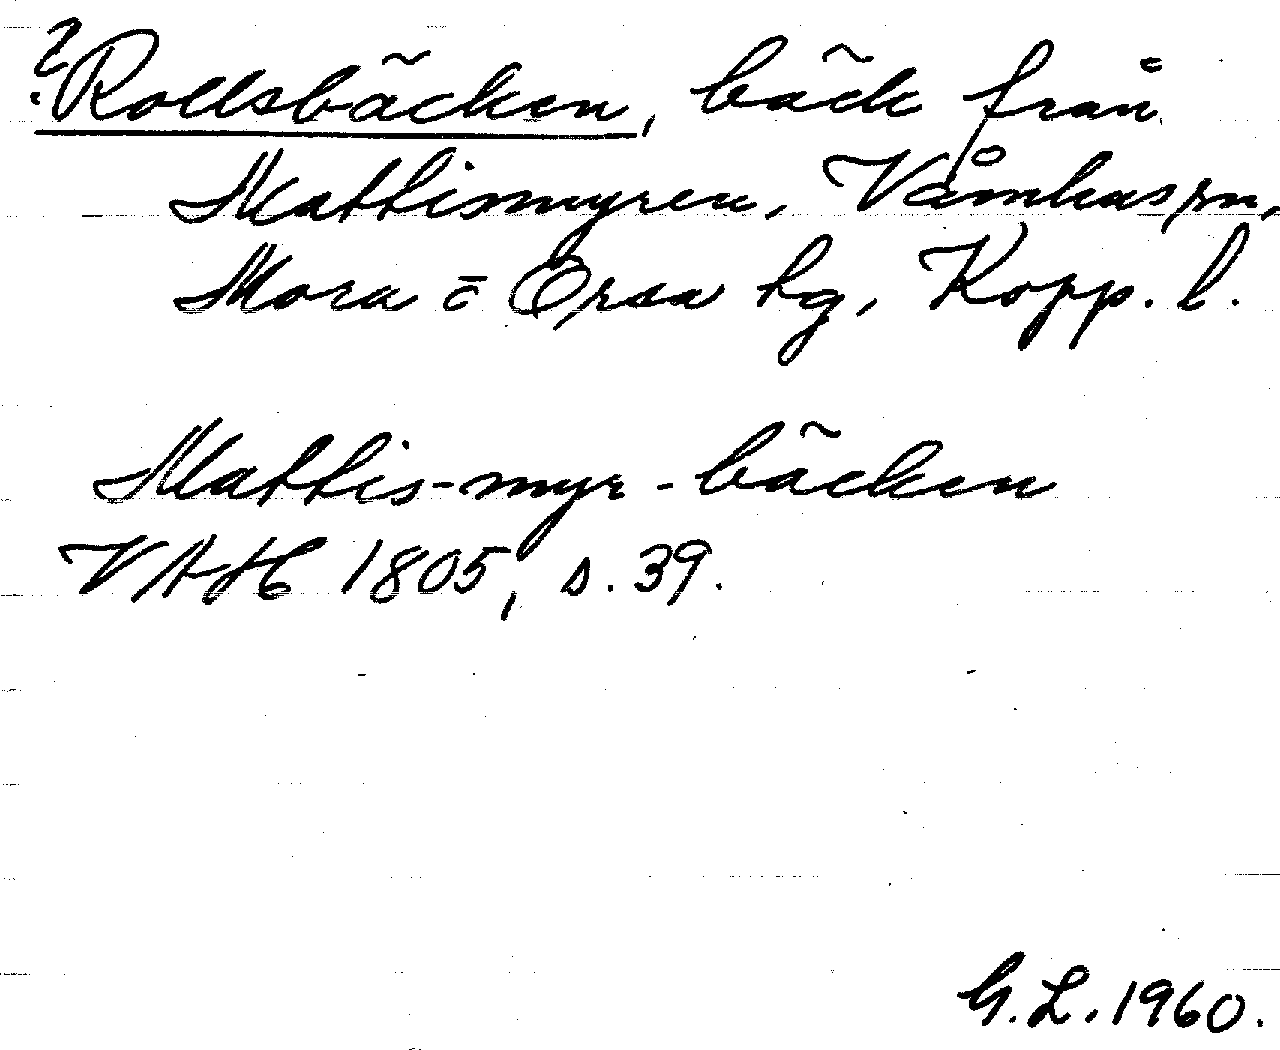 ? Rollsbäcken, bäck från
Mattismyren, Våmhus sn,
Mora o Orsa tg, Kopp. l.
Mattis-myr-bäcken
VAH 1805, s. 39.
G. L. 1960.